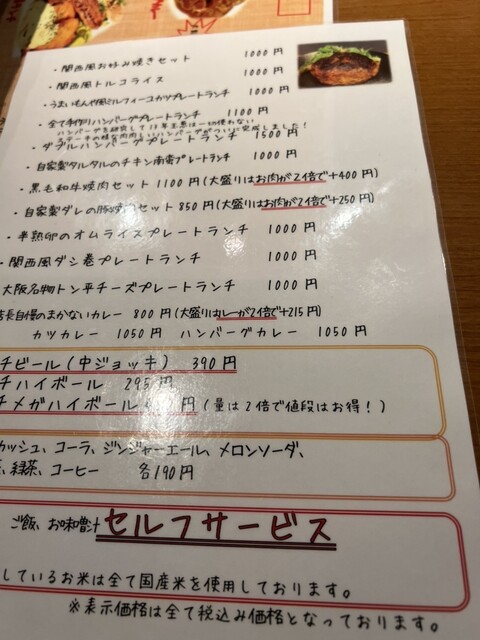 ・関西風お好み焼きセット 1000円
・関西風トルコライス 1000円
・うまいもんや風ミルフィーユカツプレートランチ 1000円
・全て手作りハンバーグプレートランチ 1100円
ハンバーグを研究して13年玉葱は一切使わない
ステーキの様な肉肉しいハンバーグがついに完成しました!
・ダブルハンバーグプレートランチ 1500円
・自家製タルタルのチキン南蛮プレートランチ 1000円
・黒毛和牛焼肉セット 1100円(大盛りはお肉が2倍で+400円)
・自家製ダレの豚焼肉セット 850円(大盛りはお肉が2倍で+250円)
・半熟卵のオムライスプレートランチ 1000円
・関西風ダシ巻プレートランチ 1000円
大阪名物トン平チーズプレートランチ 1000円
店長自慢のまかないカレー 800円(大盛りはルーが2倍で+215円)
カツカレー 1050円 ハンバーグカレー 1050円
チビール(中ジョッキ) 390円
チハイボール 295円
チメガハイボール 円(量は2倍で値段はお得!)
カッシュ、コーラ、ジンジャーエール、メロンソーダ、
、緑茶、コーヒー 各190円
ご飯、お味噌汁 セルフサービス
しているお米は全て国産米を使用しております。
※表示価格は全て税込み価格となっております。